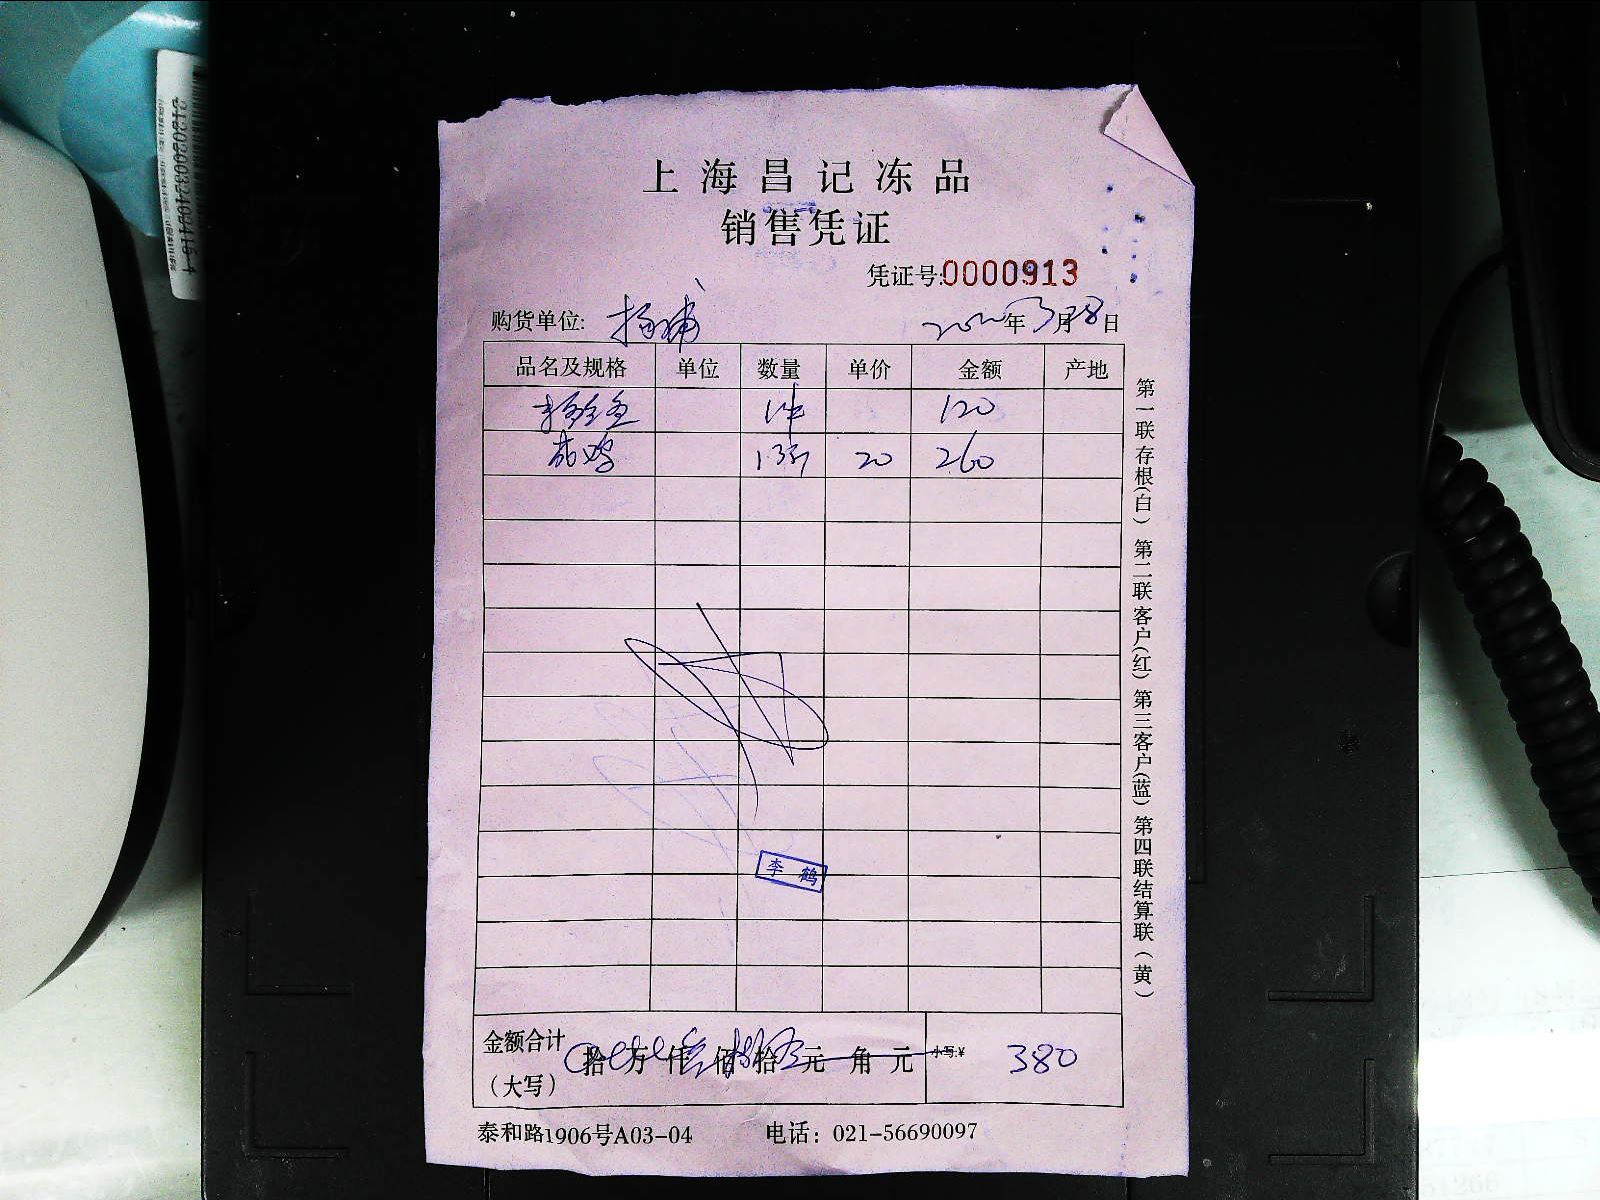 上海昌记冻品
销售凭证
凭证号:0000913
购货单位: 杨浦 年3月28日
品名及规格 单位 数量 单价 金额 产地
1件 120
20 260
李鹤
金额合计
(大写)
拾 万 仟 佰 拾 元 角 元 小写:¥ 380
泰和路1906号A03-04 电话: 021-56690097
第一联存根(白) 第二联客户(红) 第三客户(蓝) 第四联结算联(黄)